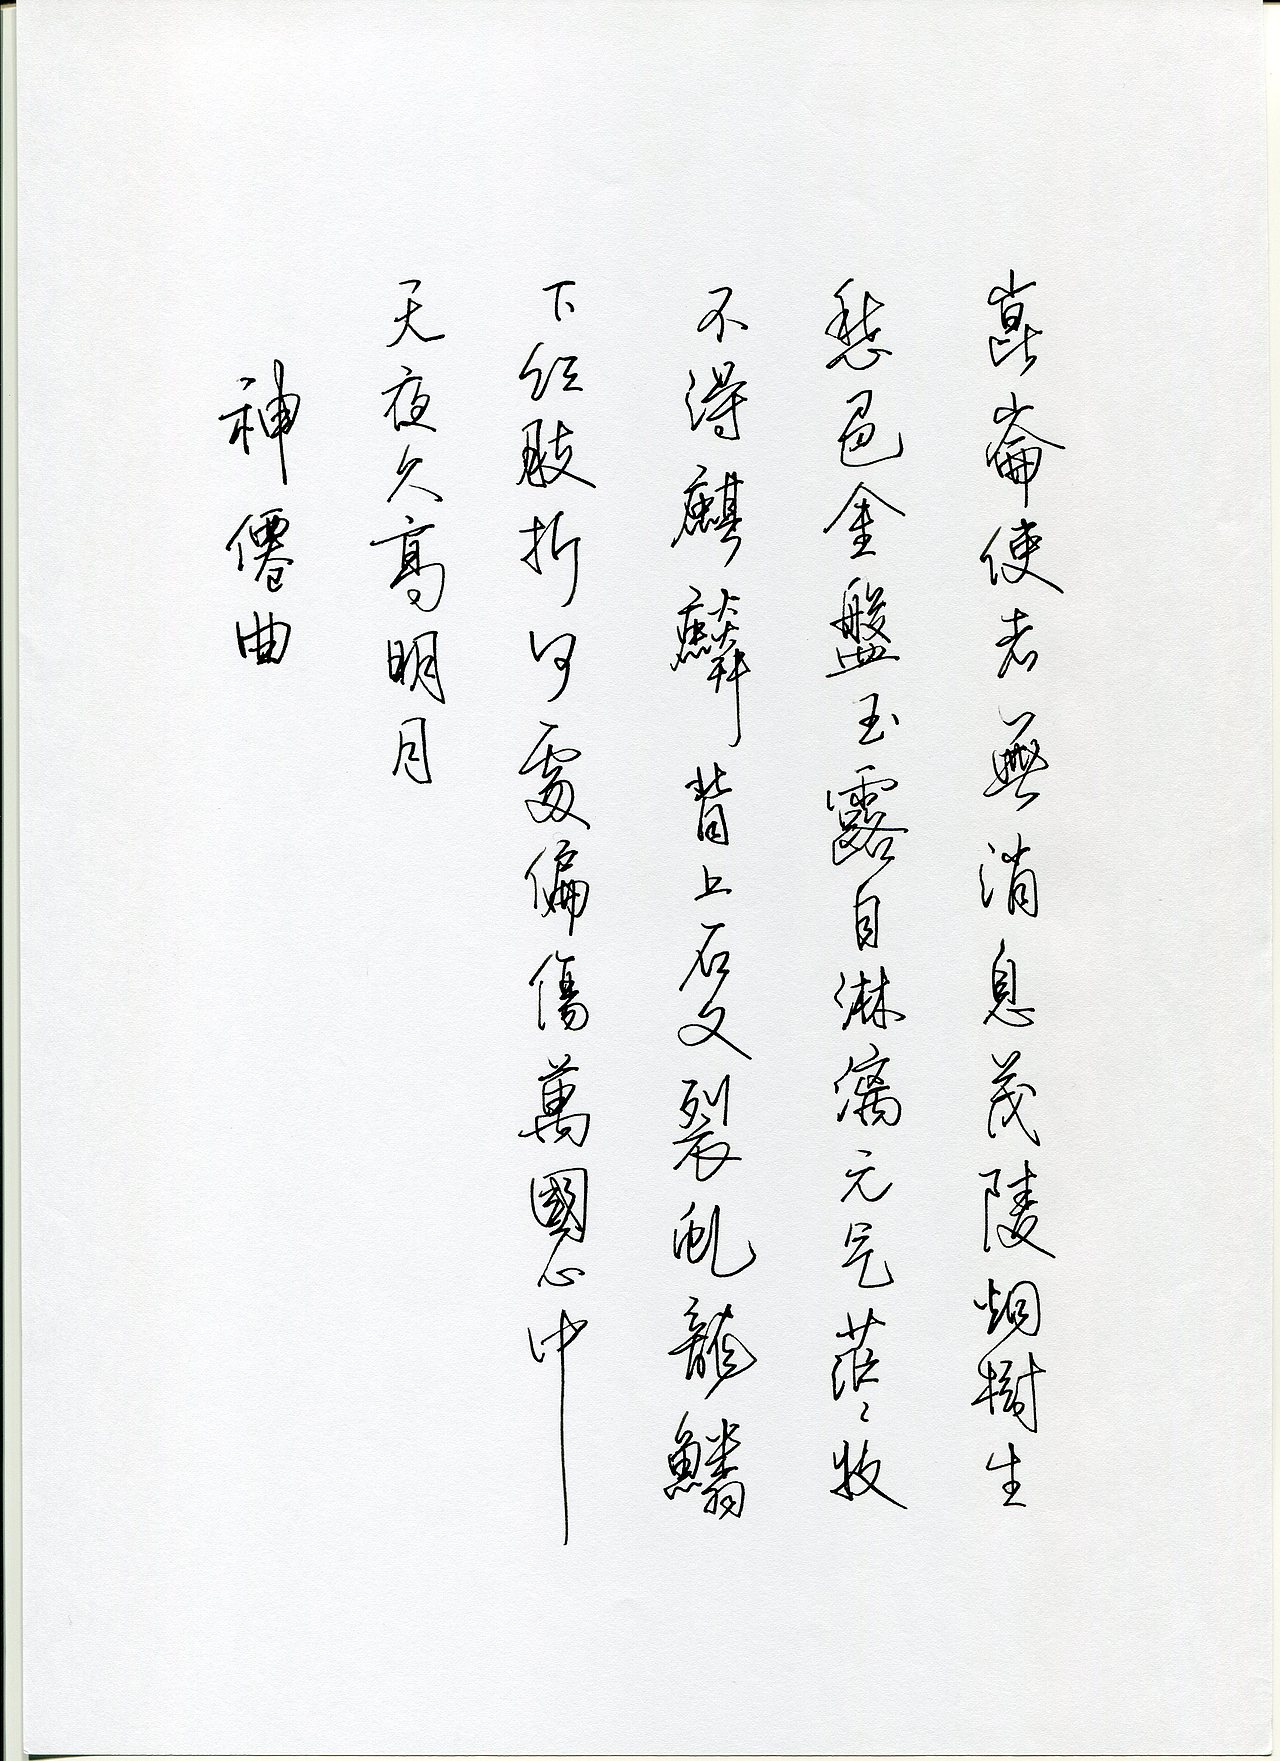 崑崙使者無消息茂陵烟樹生
愁色金盤玉露自淋漓元气茫〻收
不得麒麟背上石文裂虬龍鱗
下紅肢折何處偏傷萬國心中
天夜久高明月
神僊曲